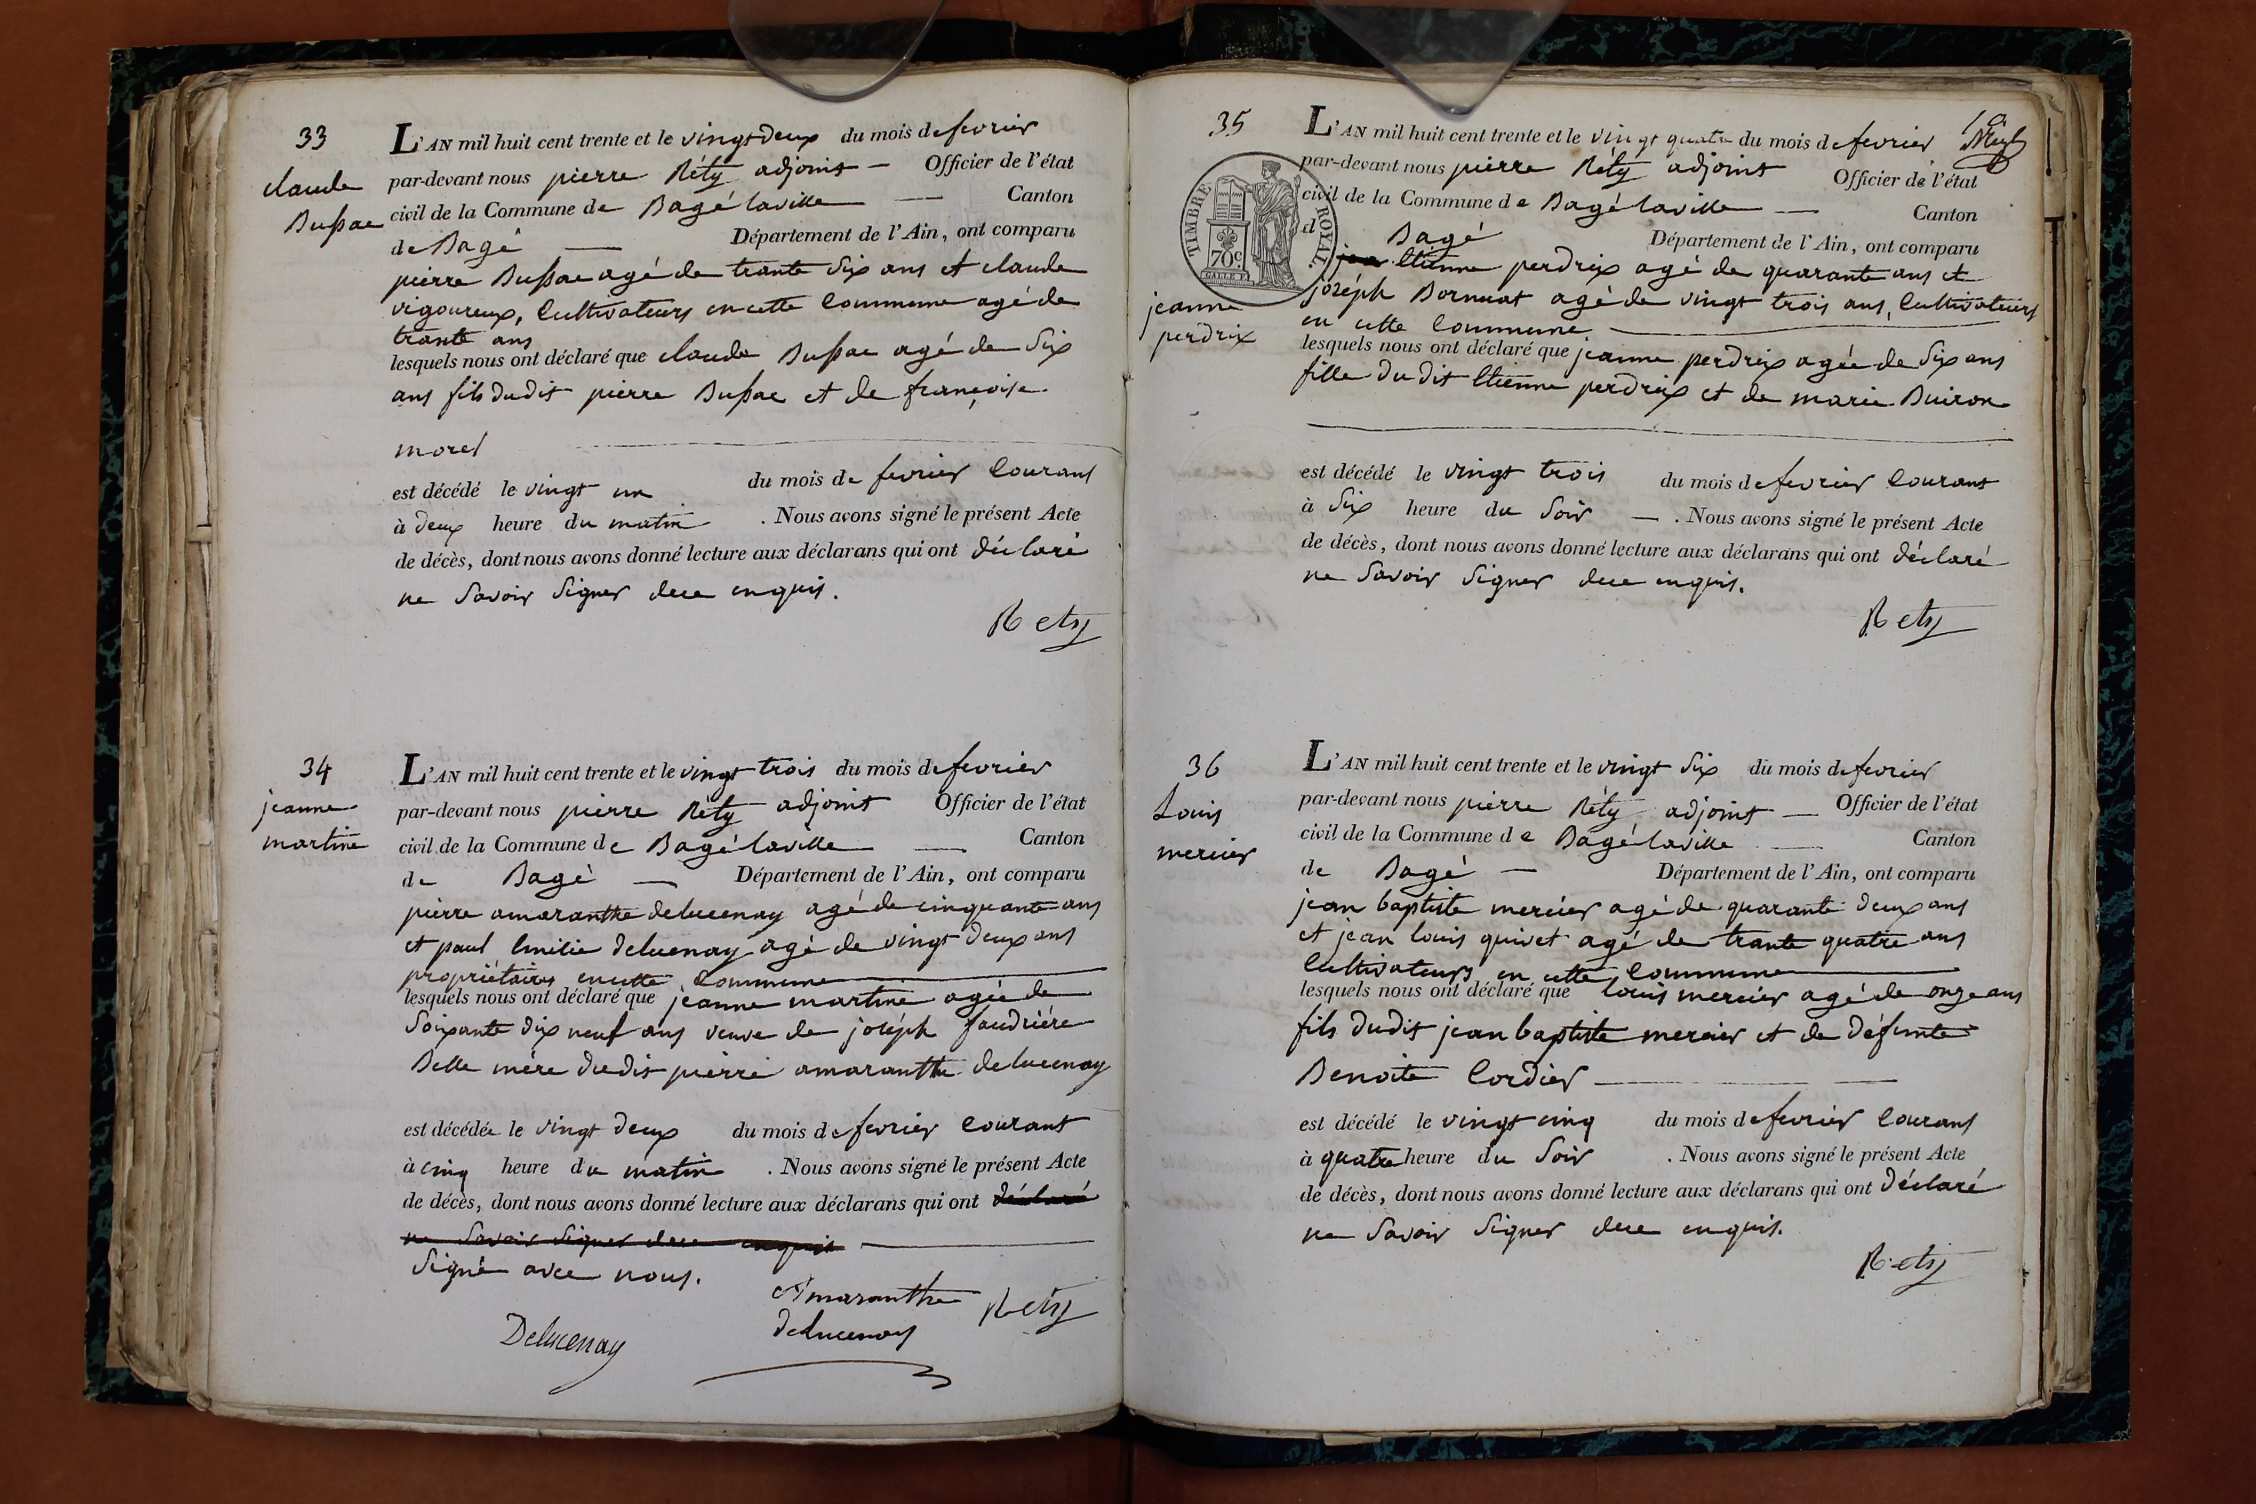 33
claude
Dussac
L'AN mil huit cent trente et le vingt deux du mois de fevrier
par-devant nous pierre Réty adjoint — Officier de l'état
civil de la Commune de Bagé laville — Canton
de Bagé — Département de l'Ain, ont comparu
pierre Dussac agé de trante six ans et claude
vigoureux, Cultivateurs en cette Commune agé de
trante ans
lesquels nous ont déclaré que claude Dussac agé de six
ans fils dudit pierre Dussac et de françoise
morel
est décédé le vingt un du mois de fevrier Courant
à deux heure du matin . Nous avons signé le présent Acte
de décès, dont nous avons donné lecture aux déclarans qui ont déclaré
ne Savoir Signer dece enquis.
Rety
34
jeanne
martine
L'AN mil huit cent trente et le vingt trois du mois de fevrier
par-devant nous pierre Réty adjoint Officier de l'état
civil de la Commune de Bagé laville — Canton
de Bagé — Département de l'Ain, ont comparu
pierre amaranthe delucenay agé de cinquante ans
et paul Emilie delucenay agé de vingt deux ans
propriétaires en cette Commune
lesquels nous ont déclaré que jeanne martine agée de
Soixante dix neuf ans veuve de joséph faudriére
Belle mére dudit pierre amaranthe delucenay
est décédée le vingt deux du mois de fevrier Courant
à cinq heure du matin . Nous avons signé le présent Acte
de décès, dont nous avons donné lecture aux déclarans qui ont déclaré
ne Savoir Signer dece enquis
Signé avec nous.
Amaranthe Rety
Delucenay delucenay
35
jeanne
perdrix
TIMBRE ROYAL.
70c
L'AN mil huit cent trente et le vingt quatre du mois de fevrier
par-devant nous pierre Réty adjoint Officier de l'état
civil de la Commune de Bagé laville — Canton
d Bagé Département de l'Ain, ont comparu
Etienne perdrix agé de quarante ans et
joséph Bornuat agé de vingt trois ans, Cultivateurs
en cette Commune
lesquels nous ont déclaré que jeanne perdrix agée de Six ans
fille dudit Etienne perdrix et de marie Buiron
est décédé le vingt trois du mois de fevrier Courant
à Six heure du Soir — . Nous avons signé le présent Acte
de décès, dont nous avons donné lecture aux déclarans qui ont déclaré
ne Savoir Signer dece enquis.
Rety
36
Louis
mercier
L'AN mil huit cent trente et le vingt Six du mois de fevrier
par-devant nous pierre Réty adjoint — Officier de l'état
civil de la Commune de Bagé laville — Canton
de Bagé — Département de l'Ain, ont comparu
jean baptiste mercier agé de quarante deux ans
et jean louis quivet agé de trante quatre ans
Cultivateurs en cette Commune
lesquels nous ont déclaré que louis mercier agé de onze ans
fils dudit jean baptiste mercier et de défunte
Benoite Cordier
est décédé le vingt cinq du mois de fevrier Courant
à quatre heure du Soir . Nous avons signé le présent Acte
de décès, dont nous avons donné lecture aux déclarans qui ont déclaré
ne Savoir Signer dece enquis.
Rety